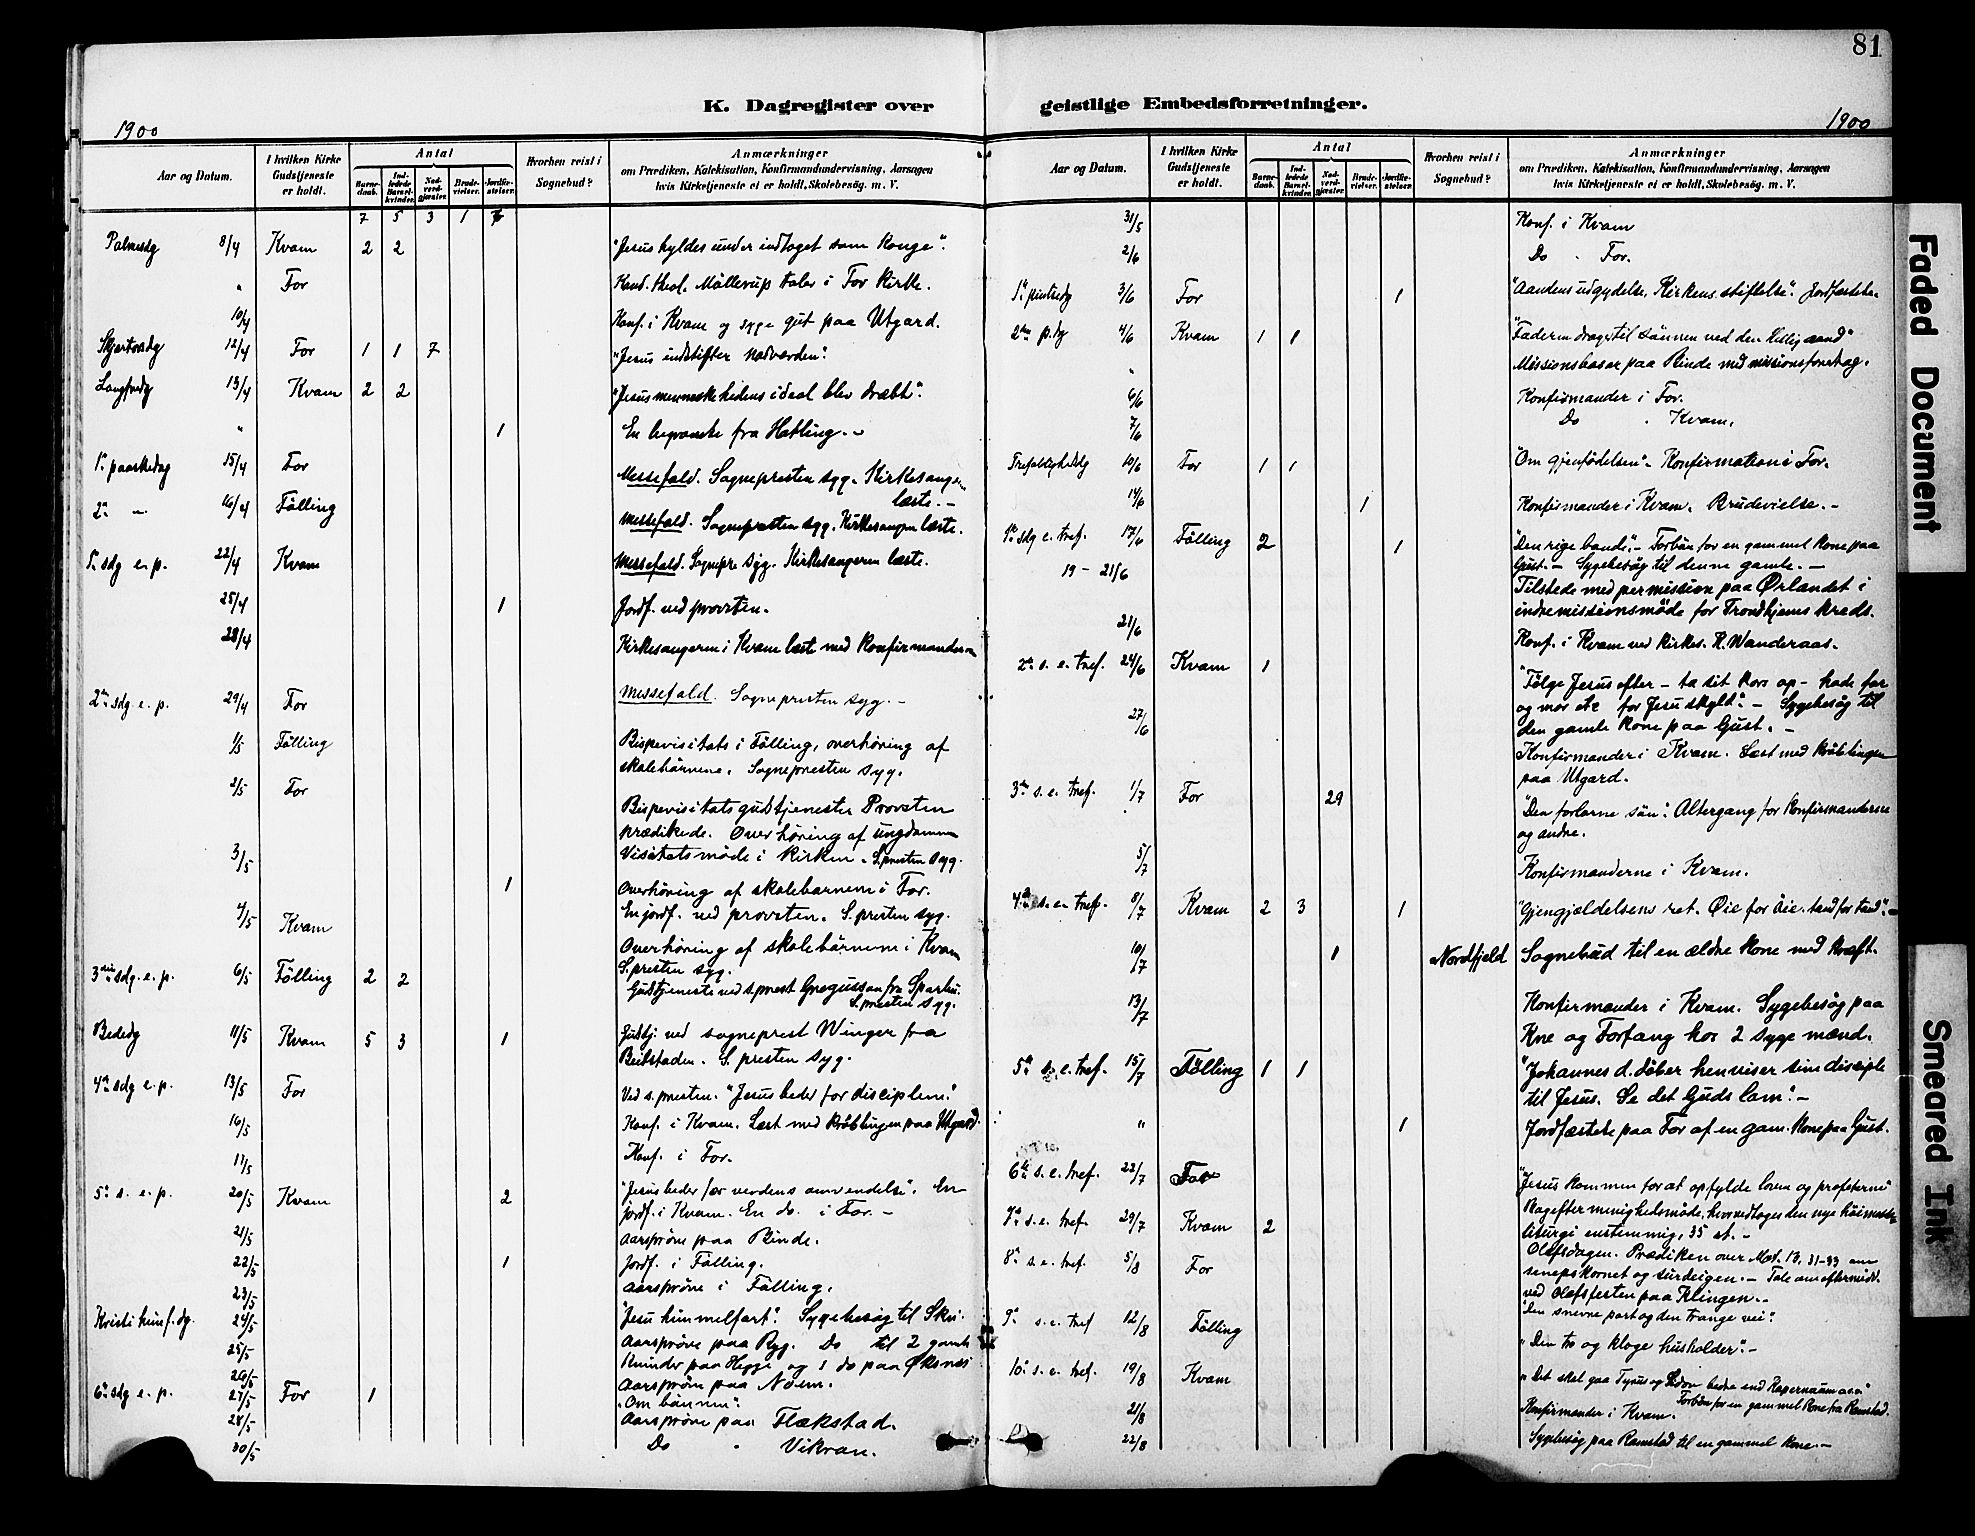 81
K. Dagregister over geistlige Embedsforretninger.
1900
Aar og Datum. I hvilken Kirke Gudstjeneste er holdt. Antal Barne-daab. Ind-ledede Barsel-kvinder. Nad-verd-gjæster. Brude-vielser. Jordfæ-stelser. Hvorhen reist i Sognebud? Anmærkninger om Prædiken, Katekisation, Konfirmandundervisning, Aarsagen hvis Kirketjeneste ei er holdt, Skolebesøg. m. V.
7 5 3 1
Palmesdg 8/4 Kvam 2 2 "Jesus hyldes under indtoget som Konge".
" For Kand. theol. Møllerup taler i For Kirke.
10/4 Konf. i Kvam og syge gut paa Utgard.
Skjærtorsdg 12/4 For 1 1 7 "Jesus indstifter Nadverden".
Langfredg 13/4 Kvam 2 2 "Jesus menneskehedens ideal blev dræbt".
" 1 En begravelse fra Hatling. -
1ste paaskedag 15/4 For Messefald. Sognepresten syg. Kirkesangeren
læste. -
2den " 16/4 Følling Messefald. Sognepresten syg. Kirkesangeren læste.
1. sdg e. p. 22/4 Kvam Messefald. Sognepr. syg. Kirkesangeren læste.
25/4 1 Jordf. ved provsten.
28/4 Kirkesangeren i Kvam læste med Konfirmanderne
2den sdg. e. p. 29/4 For Messefald. Sognepresten syg. -
1/5 Følling Bispevisitats i Følling, overhøring af
skolebørnene. Sognepresten syg.
2/5 For Bispevisitatsgudstjeneste Provsten
prædikede. Overhøring af ungdommen
Visitatsmøde i Kirken. S.presten syg.
3/5 1 Overhøring af skolebørnene i For.
En jordf. ved provsten. S.presten syg.
4/5 Kvam Overhøring af skolebørnene i Kvam
S.presten syg.
3die sdg. e. p. 6/5 Følling 2 2 Gudstjeneste ved s.prest Gregussen fra Sparbu.
S.presten syg.
Bededg 11/5 Kvam 5 3 1 Gudstj. ved sogneprest Winger fra
Beitstaden. S.presten syg.
4de sdg e. p. 13/5 For Ved s.presten. "Jesus beder for disciplene."
16/5 Konf. i Kvam. Læst med Krøblingen paa Utgard.
17/5 Konf. i For.
5te s. e. p. 20/5 Kvam 2 "Jesus beder for verdens omvendelse". En
jordf. i Kvam. En do. i For. -
21/5 Aarsprøve paa Binde.
22/5 1 Jordf. i Følling.
23/5 Aarsprøve i Følling.
Kristi himf. dg. 24/5 "Jesu himmelfart". Sygebesøg til
25/5 Aarsprøve paa Ryg. Do til 2 gamle
Kvinder paa Hegge og 1 do paa Øksnes
26/5 Aarsprøve paa Noem.
6te sdg e. p. 27/5 For 1 "Om bønnen".
28/5 Aarsprøve paa Flækstad.
30/5 Do " Vikran.
1900
Aar og Datum. I hvilken Kirke Gudstjeneste er holdt. Antal Barne-daab. Ind-ledede Barsel-kvinder. Nad-verd-gjæster. Brude-vielser. Jordfæ-stelser. Hvorhen reist i Sognebud? Anmærkninger om Prædiken, Katekisation, Konfirmandundervisning, Aarsagen hvis Kirketjeneste ei er holdt, Skolebesøg. m. V.
31/5 Konf. i Kvam
2/6 Do . For.
1ste pintsedg 3/6 For 1 "Aandens udgydelse, Kirkens stiftelse". Jordfæstelse.
2den p.dg 4/6 Kvam 1 1 "Faderen drager til sønnen ved den Hellig aand"
" Missionsbasar paa Binde med missionsforedrag.
6/6 Konfirmander i For.
7/6 Do . Kvam.
Trefoldighedsdg 10/6 For 1 1 "Om gjenfødelsen". Konfirmation i For.
14/6 1 Konfirmander i Kvam. Brudevielse. -
1ste sdg e. tref. 17/6 Følling 2 1 "Den rige bonde". - Forbøn for en gammel kone paa
Gust. - Sygebesøg til denne gamle. -
19 - 21/6 Tilstede med permission paa Ørlandet i
indremissionsmøde for Trondhjems Kreds.
21/6 Konf. i Kvam ved Kirkes. K. Wanderaas.
2den s. e. tref. 24/6 Kvam 1 "Følge Jesus efter - ta sit kors op - hade far
og mor etc for Jesu skyld". - Sygebesøg til
den gamle kone paa Gust. -
27/6 Konfirmander i Kvam. Læst med Krøblingen
paa Utgard.
3die s. e. tref. 1/7 For 29 "Den forlorne søn". Altergang for Konfirmanderne
og andre.
5/7 Konfirmanderne i Kvam.
4de s. e. tref. 8/7 Kvam 2 3 1 "Gjengjældelsens ret. Øie for øie. tand for tand". -
10/7 1 Nordfjeld Sognebud til en ældre kone med Kræft.
13/7 Konfirmander i Kvam. Sygebesøg paa
Kne og Forfang hos 2 syge mænd.
5te s. e. tref. 15/7 Følling 1 1 "Johannes d. døber henviser sine disciple
til Jesus. Se det Guds lam". -
" 1 Jordfæstelse paa For af en gam. kone paa Gust.
6te s. e. tref. 22/7 For "Jesus kommen for at opfylde loven og profeterne"
Bagefter menighedsmøde, hvor vedtoges den nye høimesse
liturgi enstemmig, 35 st. -
7de s. e. tref. 29/7 Kvam 2 Olafsdagen. Prædiken over Mat. 13, 31-33 om
senepskornet og surdeigen. - Tale om eftermidd.
ved Olafsfesten paa Klingen. -
8de s. e. tref. 5/8 For "Den snevre port og den trange vei".
9de s. e. tref 12/8 Følling "Den tro og kloge husholder". -
10de s. e. tref. 19/8 Kvam "Det skal gaa Tyrus og Sidon bedre end Kapernaum osv."
Forbøn for en gammel kone fra Ramstad.
21/8 Konfirmander i Kvam.
22/8 Sygebesøg paa Ramstad til en gammel kone. -
Faded Document
Smeared Ink